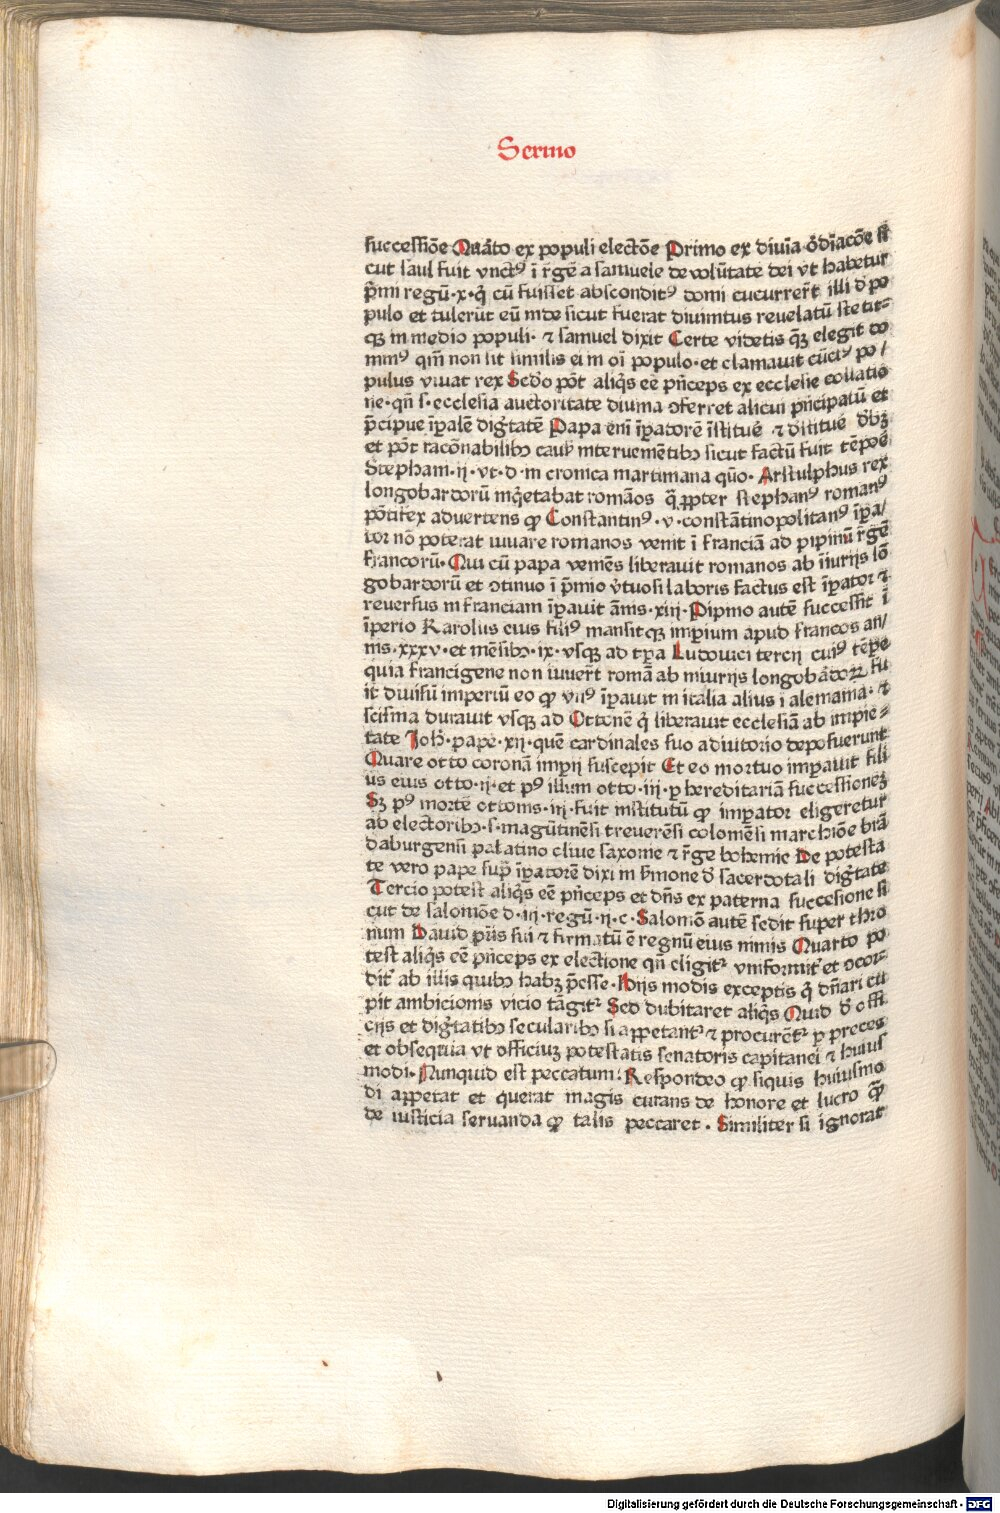 Sermo
successiõe Quãto ex populi electõe Primo ex diuĩa ordĩacõe si
cut saul fuit vnctꝰ ĩ rẽgẽ a samuele de volũtate dei vt habetur
p̃mi regũ·x·q̃ cũ fuisset absconditꝰ domi cucurrer̃t illi d̃ po
pulo et tulerũt eũ inde sicut fuerat diuinitus reuelatũ stetit⸗
qꝫ in medio populi· ⁊ samuel dixit Certe videtis q̃ꝫ elegit do
minꝰ qm̃ non sit similis ei in oĩ populo·et clamauit cũctꝰ po/
pulus viuat rex Secũdo põt aliq̃s eẽ p̃nceps ex ecclesie collatio
ne·qñ s·ecclesia auctoritate diuina ↄferret alicui p̃ncipatũ et
p̃cipue ĩp̃alẽ dig̃tatẽ Papa eni ĩp̃atorẽ ĩstituẽ ⁊ d̃stituẽ d̃bꝫ
et põt racõnabilibꝰ causꝭ interueniẽtibꝰ sicut factũ fuit tẽpoẽ
Stephani·ij·vt·d·in cronica martiniana quõ· Arstulphus rex
longobardorũ inq̃etabat romãos q̃ p̱pter stephanꝰ romanꝰ
põtifex aduertens ꝙ Constantinꝰ·v·constãtinopolitanꝰ ĩp̃a/
tor nõ poterat iuuare romanos venit ĩ franciã ad pipinũ rẽgẽ
francorũ· Qui cũ papa veniẽs liberauit romanos ab ĩiurijs lõ
gobardorũ et ↄtinuo ĩ p̃mio ṽtuosi laboris factus est ĩp̃ator ⁊
reuersus in franciam ĩp̃auit ãnis·xiij·Pipino autẽ successit ĩ
ĩperio Karolus eius filiꝰ mansitqꝫ imp̃ium apud francos an/
nis·xxxv·et mẽsibꝰ·ix·vsqꝫ ad tp̃a Ludouici tercij cuiꝰ tẽpe
quia francigene non iuuer̃t romã ab iniurijs longobãdoꝝ fu
it diuisũ imperiũ eo ꝙ vnꝰ ĩp̃auit in italia alius i alemania· ⁊
scisma durauit vsqꝫ ad Ottonẽ q̃ liberauit ecclesiã ab impie⸗
tate Joh̃·pape·xij·quẽ cardinales suo adiutorio deposuerunt
Quare otto coronã imp̃ij suscepit Et eo mortuo imp̃auit fili
us eius otto·ij·et pꝰ illum otto·iij·p̱ hereditariã successionẽ
Sꝫ pꝰ mortẽ ottonis·iij·fuit institutũ ꝙ imp̃ator eligeretur
ab electoribꝰ·s·magũtinẽsi treuerẽsi coloniẽsi marchiõe brã
daburgensi palatino cliue saxonie ⁊ rẽge bohemie De potesta
te vero pape sup̃ ĩp̃atorẽ dixi in s̃mone d̃ sacerdotali dig̃tate
Tercio potest aliq̃s eẽ p̃nceps et dñs ex paterna succesione si
cut de salomõe d·iij·regũ·ij·c·Salomõ autẽ sedit super thro
num Dauid p̃ris sui ⁊ firmatũ ẽ regnũ eius nimis Quarto po
test aliq̃s eẽ p̃nceps ex electione qñ eligitᷣ vniformit̃ et ↄcor⸗
dit̃ ab illis quibꝰ habꝫ p̃esse·Hijs modis exceptis q̃ dñari cu
pit ambicionis vicio tãgitᷣ Sed dubitaret aliq̃s Quid d̃ offi
cijs et dig̃tatibꝰ secularibꝰ si appetantᷣ ⁊ procurẽtᷣ p̱ preces
et obsequia vt officiuꝫ potestatis senatoris capitanei ⁊ huius
modi· Nunquid est peccatum: Respondeo ꝙ siquis huiusmo
di appetat et querat magis curans de honore et lucro q̃
de iusticia seruanda ꝙ talis peccaret· Similiter si ignorat
Digitalisierung gefördert durch die Deutsche Forschungsgemeinschaft - DFG